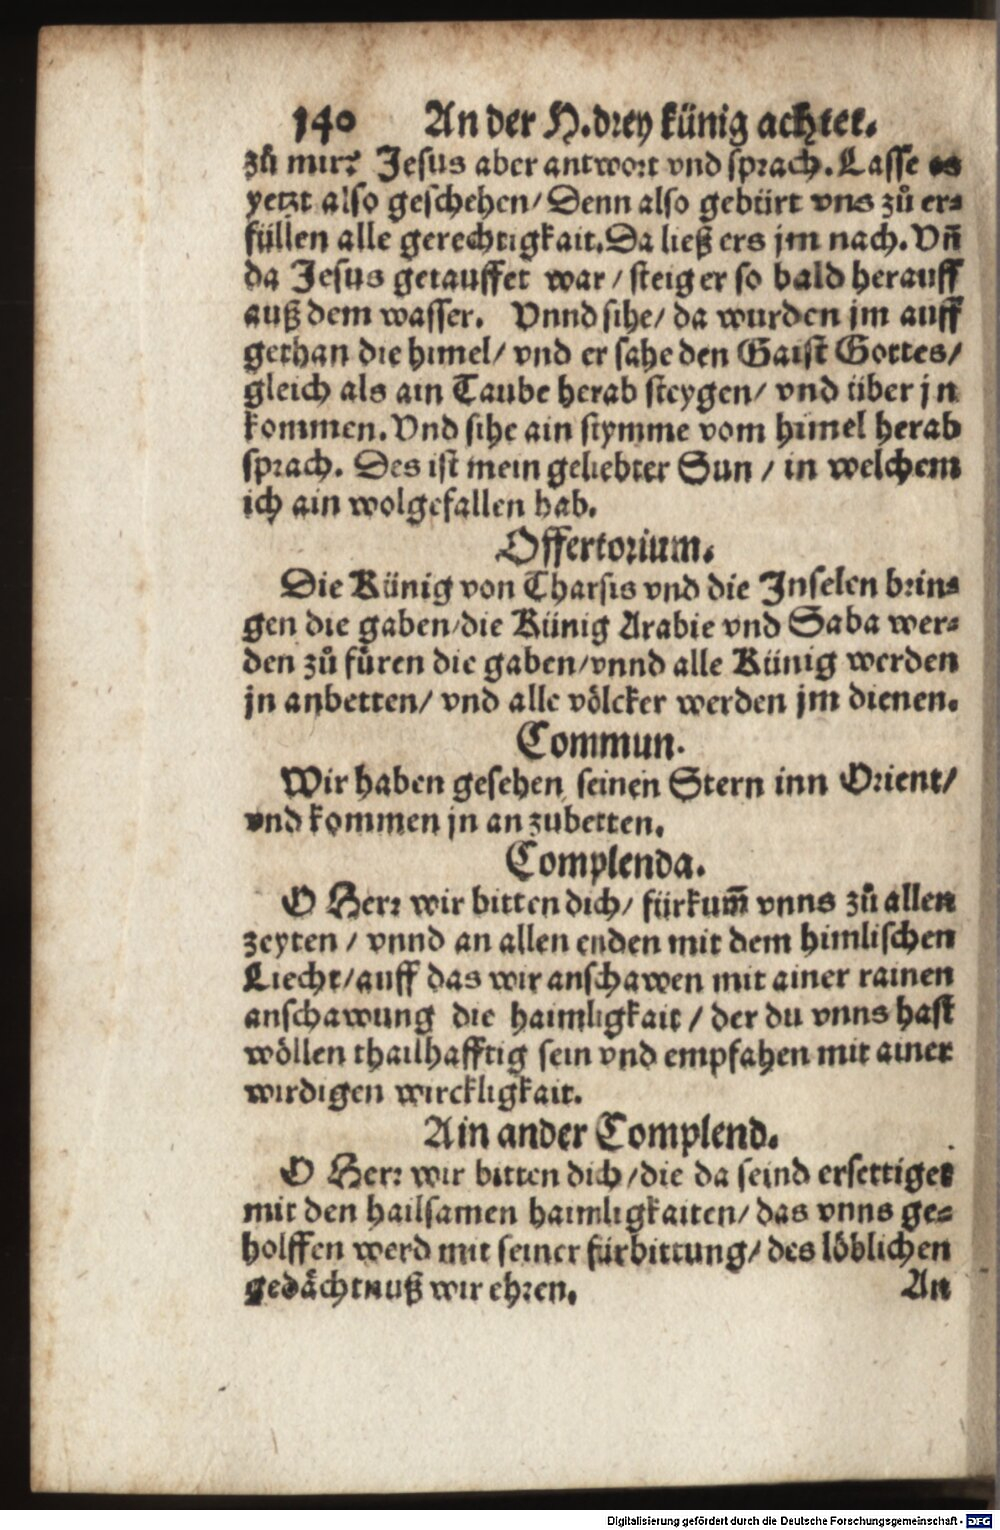 140 An der H. drey künig achtet.
zů mir? Jesus aber antwort vnd sprach. Lasse es
yetzt also geschehen/ Denn also gebürt vns zů er=
füllen alle gerechtigkait. Da ließ ers jm nach. Vñ
da Jesus getauffet war / steig er so bald herauff
auß dem wasser. Vnnd sihe/ da wurden jm auff
gethan die himel/ vnd er sahe den Gaist Gottes/
gleich als ain Taube herab steygen/ vnd über jn
kommen. Vnd sihe ain stymme vom himel herab
sprach. Des ist mein geliebter Sun / in welchem
ich ain wolgefallen hab.
Offertorium.
Die Künig von Tharsis vnd die Inselen brin=
gen die gaben/ die Künig Arabie vnd Saba wer=
den zů füren die gaben/ vnnd alle Künig werden
jn anbetten/ vnd alle völcker werden jm dienen.
Commun.
Wir haben gesehen seinen Stern inn Orient/
vnd kommen jn an zubetten.
Complenda.
O Herr wir bitten dich/ fürkum̃ vnns zů allen
zeyten / vnnd an allen enden mit dem himlischen
Liecht/ auff das wir anschawen mit ainer rainen
anschawung die haimligkait / der du vnns hast
wöllen thailhafftig sein vnd empfahen mit ainer
wirdigen wirckligkait.
Ain ander Complend.
O Herr wir bitten dich/ die da seind ersettiget
mit den hailsamen haimligkaiten/ das vnns ge=
holffen werd mit seiner fürbittung/ des löblichen
gedächtnuß wir ehren. An
Digitalisierung gefördert durch die Deutsche Forschungsgemeinschaft - DFG